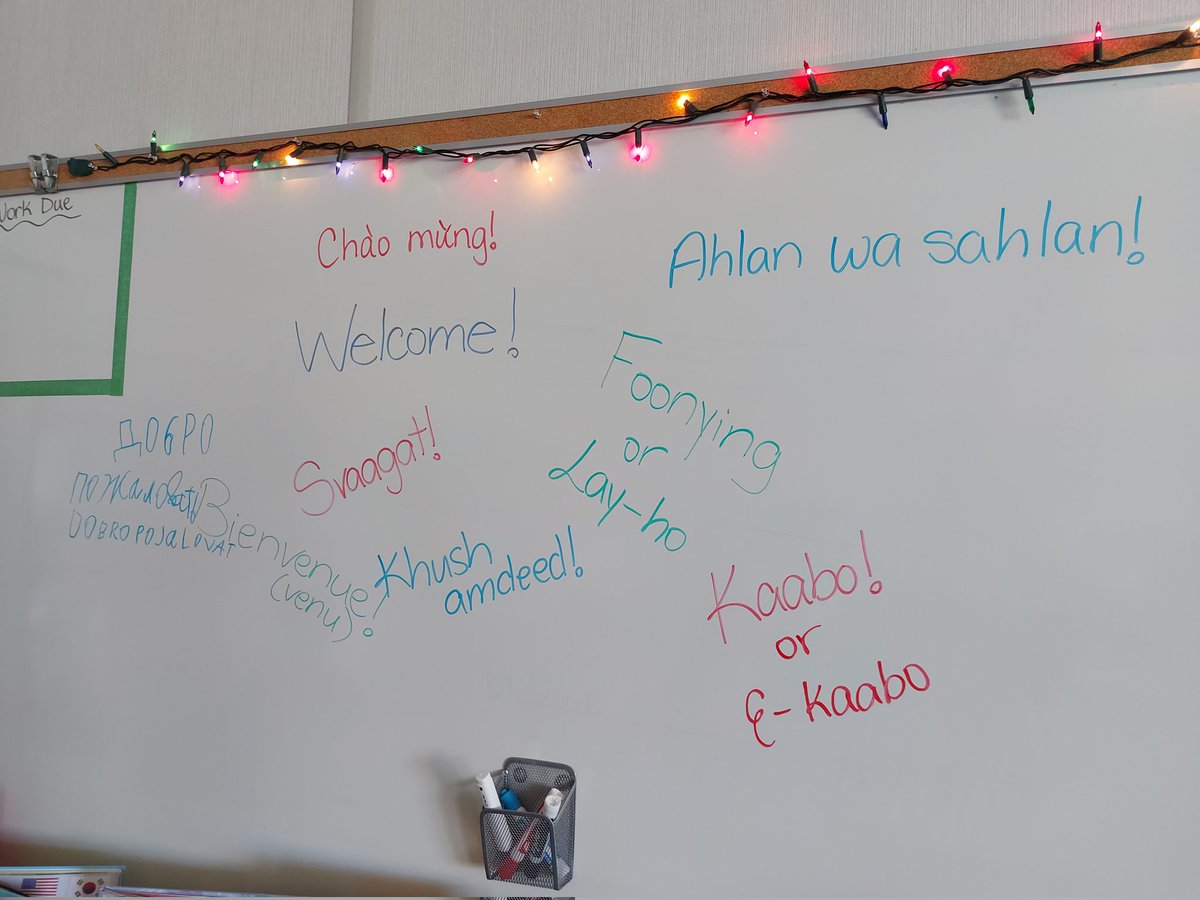 Work Due
Chào mừng!
Ahlan wa sahlan!
Welcome!
Foonying
or
Lay-ho
Svaagat!
ДОБРО
ПОЖАЛОВать
DOBRO POJALOVAT
Bienvenue!
(venu)
Khush
amdeed!
Kaabo!
or
Ɛ-kaabo